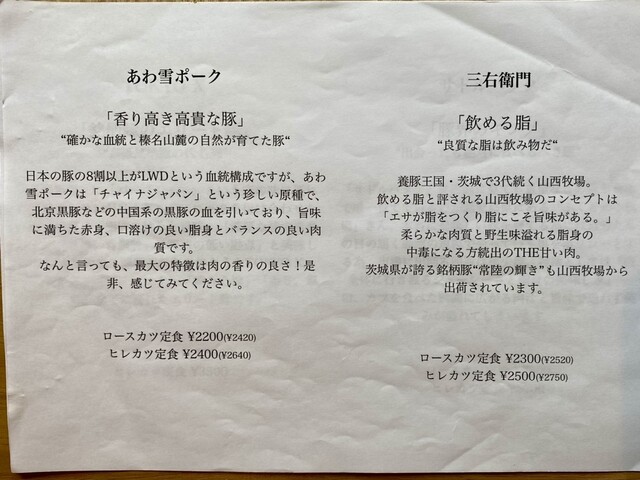 あわ雪ポーク
「香り高き高貴な豚」
“確かな血統と榛名山麓の自然が育てた豚“
日本の豚の8割以上がLWDという血統構成ですが、あわ
雪ポークは「チャイナジャパン」という珍しい原種で、
北京黒豚などの中国系の黒豚の血を引いており、旨味
に満ちた赤身、口溶けの良い脂身とバランスの良い肉
質です。
なんと言っても、最大の特徴は肉の香りの良さ！是
非、感じてみてください。
ロースカツ定食 ¥2200(¥2420)
ヒレカツ定食 ¥2400(¥2640)
三右衛門
「飲める脂」
“良質な脂は飲み物だ“
養豚王国・茨城で3代続く山西牧場。
飲める脂と評される山西牧場のコンセプトは
「エサが脂をつくり脂にこそ旨味がある。」
柔らかな肉質と野生味溢れる脂身の
中毒になる方続出のTHE甘い肉。
茨城県が誇る銘柄豚“常陸の輝き”も山西牧場から
出荷されています。
ロースカツ定食 ¥2300(¥2520)
ヒレカツ定食 ¥2500(¥2750)